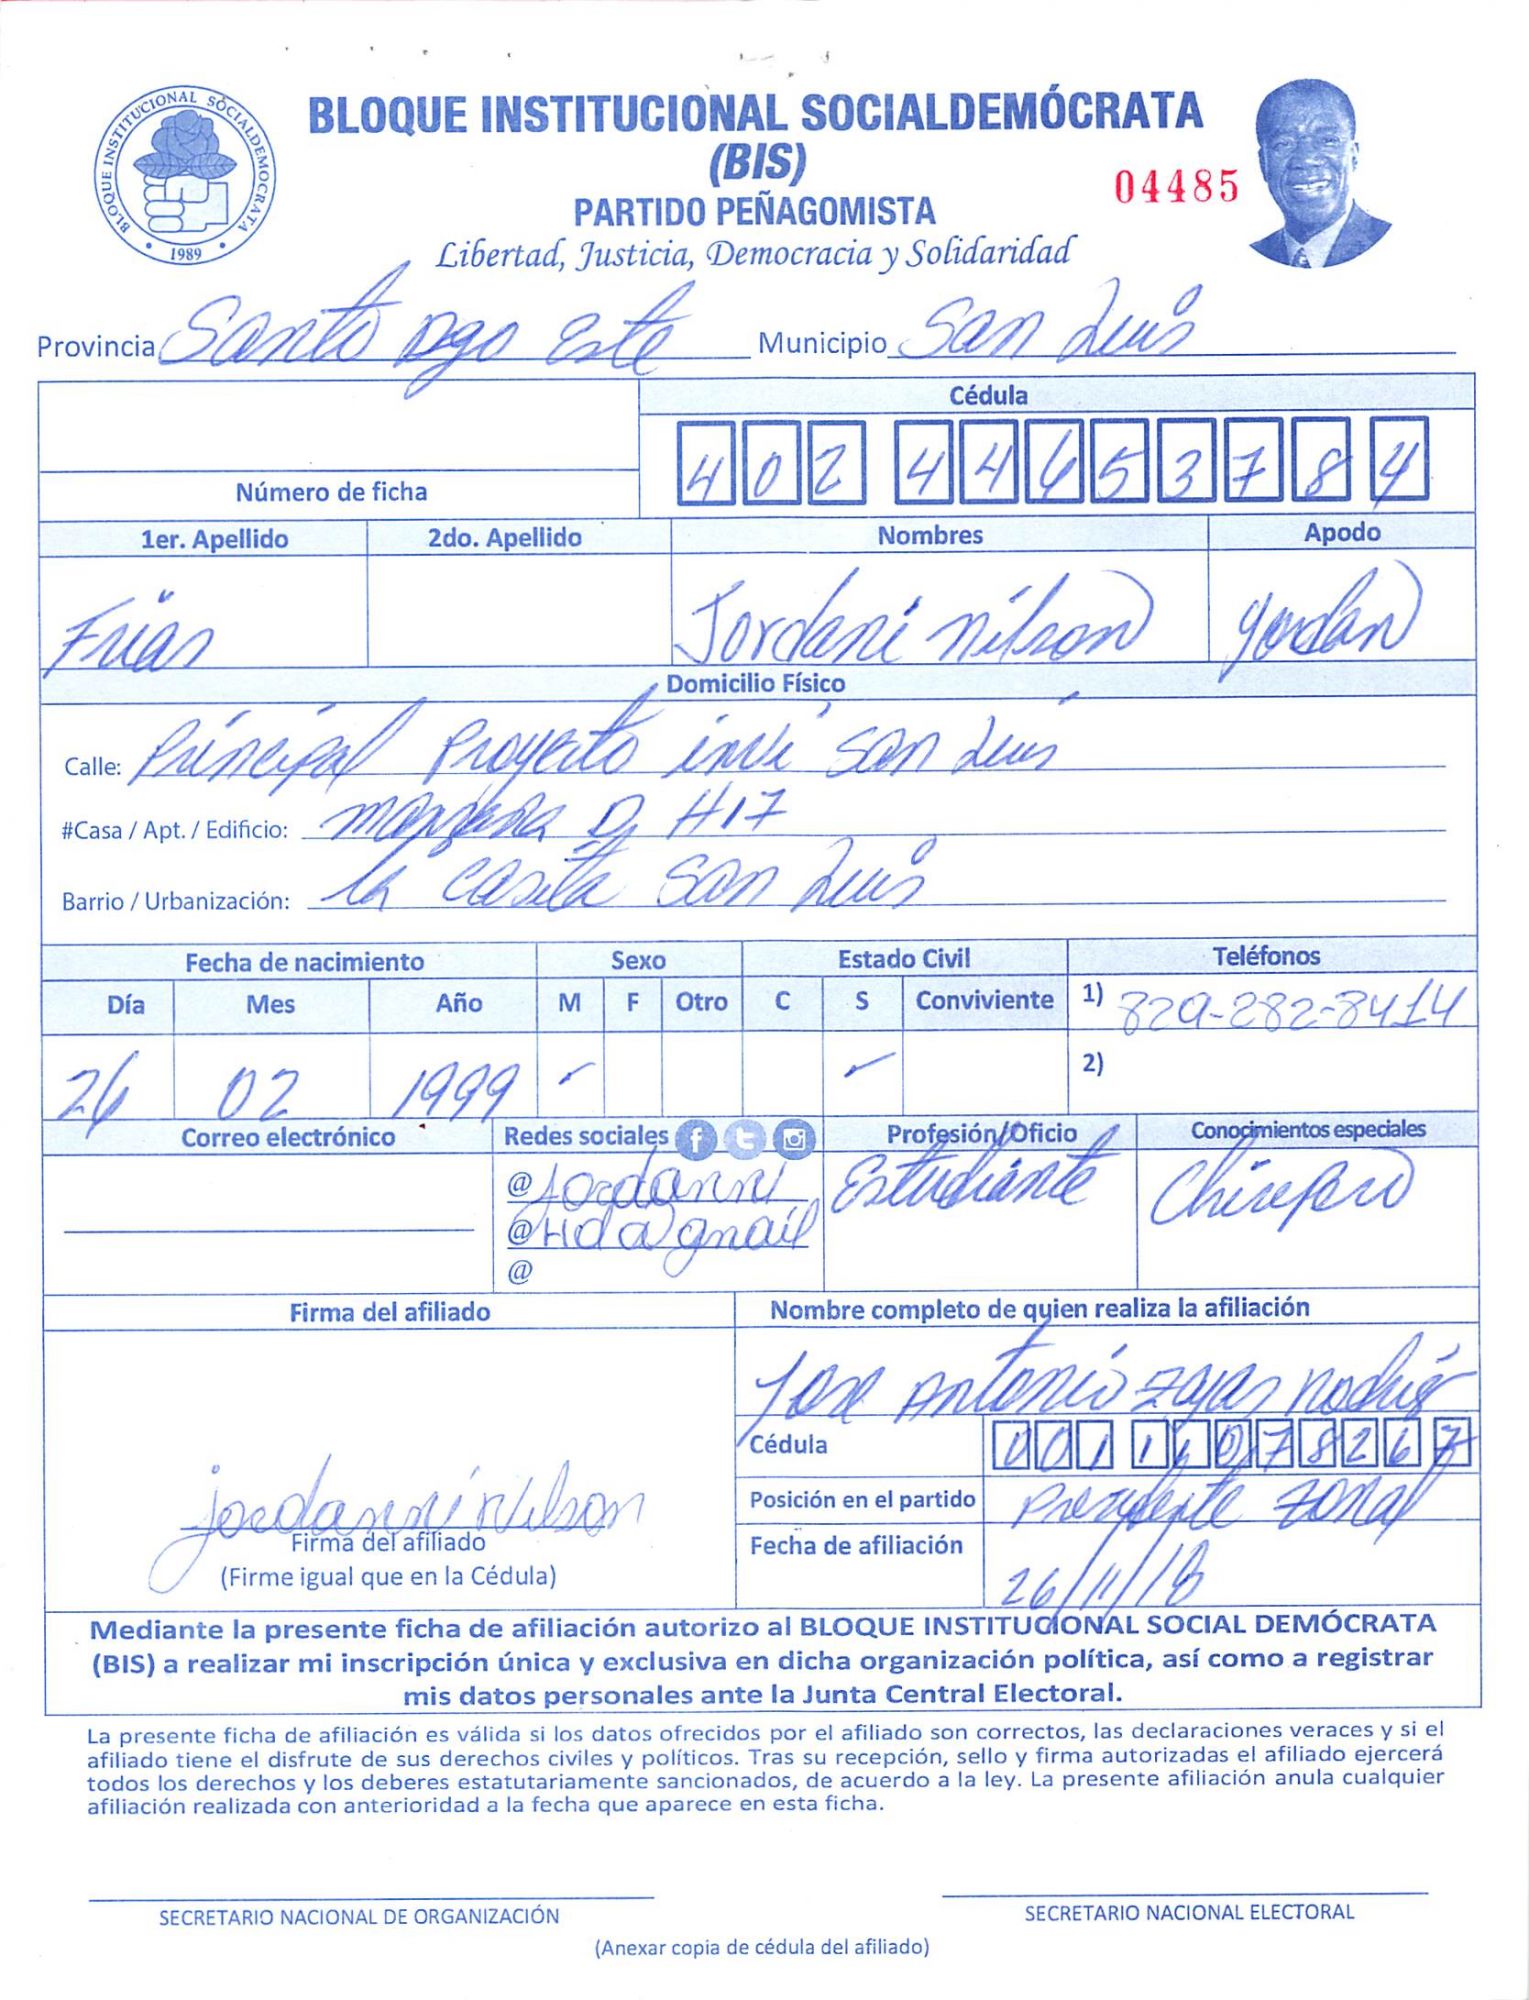 BLOQUE INSTITUCIONAL SOCIALDEMOCRATA
1989
BLOQUE INSTITUCIONAL SOCIALDEMÓCRATA
(BIS)
04485
PARTIDO PEÑAGOMISTA
Libertad, Justicia, Democracia y Solidaridad
Provincia Santo Dgo Este Municipio San Luis
Cédula
402 4465378 4
Número de ficha
1er. Apellido 2do. Apellido Nombres Apodo
Frias Jordani Nilson Yordan
Domicilio Físico
Calle: Principal Proyecto invi San Luis
#Casa / Apt. / Edificio: manzana D H17
Barrio / Urbanización: la casita San Luis
Fecha de nacimiento Sexo Estado Civil Teléfonos
Día Mes Año M F Otro C S Conviviente 1) 829-282-8414
26 02 1999 2)
Correo electrónico Redes sociales Profesión/Oficio Conocimientos especiales
@Jordanni Estudiante Chiripero
@Hd@gmail
@
Firma del afiliado Nombre completo de quien realiza la afiliación
Jose Antonio Zayas
Cédula 001 1107826 7
jordanni Nilson
Posición en el partido Presidente Zonal
Firma del afiliado
Fecha de afiliación 26/11/18
(Firme igual que en la Cédula)
Mediante la presente ficha de afiliación autorizo al BLOQUE INSTITUCIONAL SOCIAL DEMÓCRATA
(BIS) a realizar mi inscripción única y exclusiva en dicha organización política, así como a registrar
mis datos personales ante la Junta Central Electoral.
La presente ficha de afiliación es válida si los datos ofrecidos por el afiliado son correctos, las declaraciones veraces y si el
afiliado tiene el disfrute de sus derechos civiles y políticos. Tras su recepción, sello y firma autorizadas el afiliado ejercerá
todos los derechos y los deberes estatutariamente sancionados, de acuerdo a la ley. La presente afiliación anula cualquier
afiliación realizada con anterioridad a la fecha que aparece en esta ficha.
SECRETARIO NACIONAL DE ORGANIZACIÓN SECRETARIO NACIONAL ELECTORAL
(Anexar copia de cédula del afiliado)